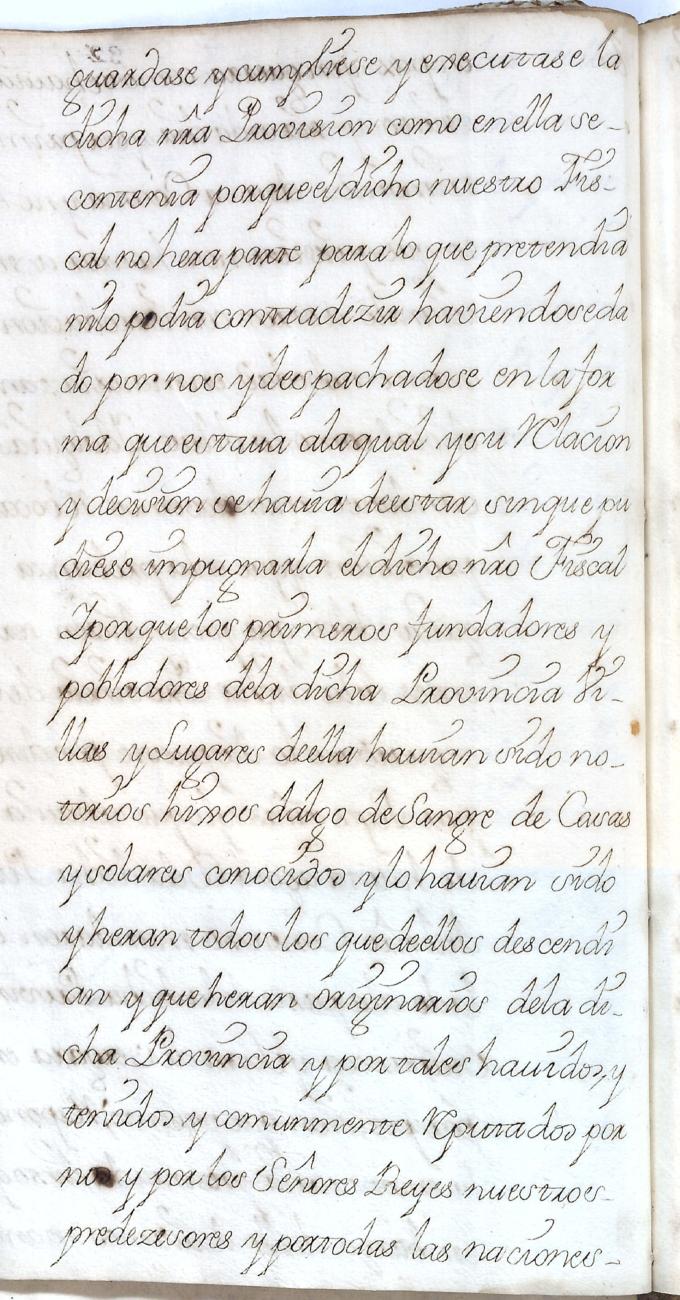 guardase y cumpliese y executase la
dicha nrâ Provision como en ella se-
contenia porque el dicho nuestro Fis-
cal no hera parte para lo que pretendia
ni lo podia contradezir haviendose da
do por nos y despachadose en la for
ma que estaua a la qual y su Relacion
y decision se hauia de estar sin que pu
diese impugnarla el dicho nrô Fiscal
Y porque los primeros fundadores y
pobladores de la dicha Provincia Vi-
llas y Lugares de ella hauian sido no-
torios hixos dalgo de Sangre de Casas
y solares conocidos y lo hauian sido
y heran todos los que de ellos descendi
an y que heran originarios de la di-
cha Provincia y por tales hauidos, y
tenidos y comunmente Reputados por
nos y por los Señores Reyes nuestros-
predezesores y por todas las naciones-